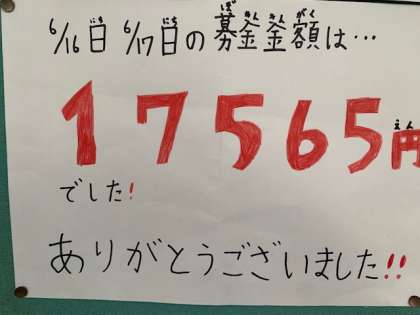 6/16日 6/17日の募金金額は…
17565円
でした!
ありがとうございました!!